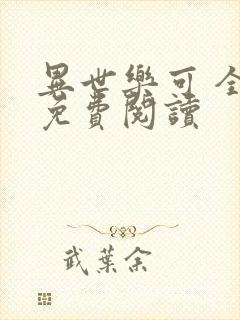 異世樂可 全
免費閱讀
武葉余